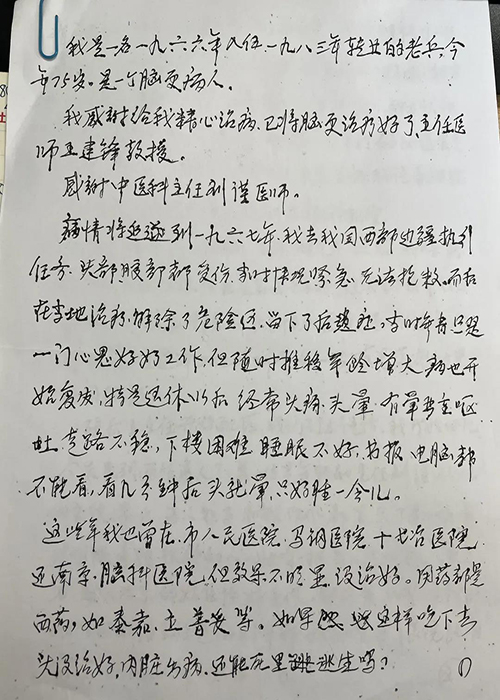 我是一名一九六六年入伍.一九八三年转业的老兵,今
年75岁。是一个脑更病人。
我感谢给我精心治病.已将脑更治疗好了.主任医
师王建锋教授。
感谢中医科主任刘谨医师。
病情将追溯到一九六七年.我去我国西部边疆执行
任务.头部.腹部都受伤.当时情况紧急.无法抢救.而后
在当地治疗.解除了危险.留下了后遗症,当时年青.只是
一门心思好好工作,但随时推移年龄增大病也开
始复发,特是退休以后经常头痛.头晕.有晕要呕
吐.走路不稳,下楼困难.睡眠不好,书报电脑都
不能看,看几分钟后头就晕,只好睡一会儿。
这些年我也曾在.市人民医院.马钢医院.十七冶医院.
还南京.脑科医院.但效果不明显.没治好。用药都是
西药,如泰嘉.立普妥等。如果这样吃下去
头没治好,内脏出病.还能死里逃生吗?